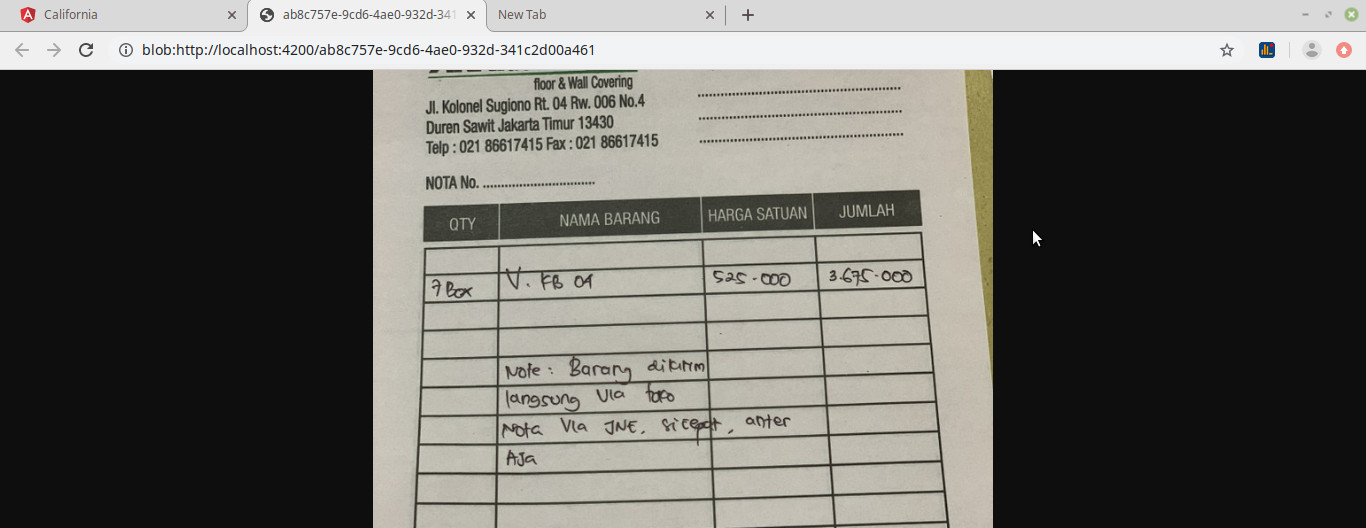 California
ab8c757e-9cd6-4ae0-932d-341
New Tab
blob:http://localhost:4200/ab8c757e-9cd6-4ae0-932d-341c2d00a461
floor & Wall Covering
Jl. Kolonel Sugiono Rt. 04 Rw. 006 No.4
Duren Sawit Jakarta Timur 13430
Telp : 021 86617415 Fax : 021 86617415
NOTA No. ..............................
QTY NAMA BARANG HARGA SATUAN JUMLAH
7 Box V. KB 01 525.000 3.675.000
Note : Barang dikirim
langsung Via toko
Nota Via JNE, sicepat, anter
Aja